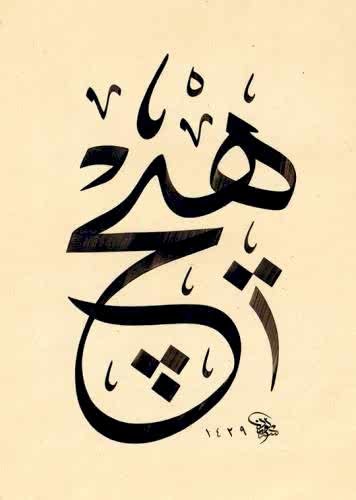 هيچ
١٤٢٩